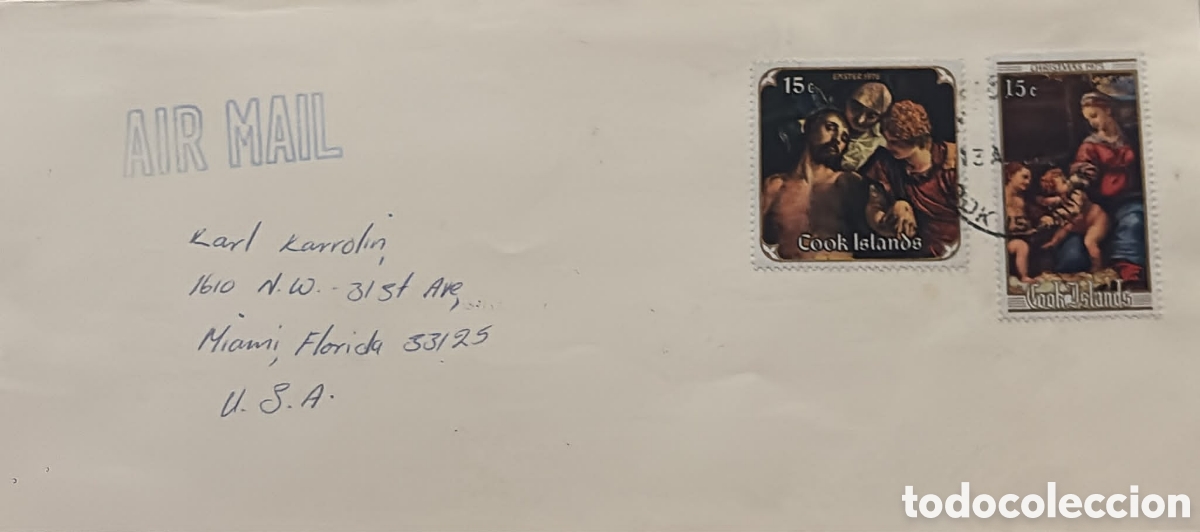 AIR MAIL
Karl Karrolin,
1610 N.W. - 31st Ave,
Miami, Florida 33125
U.S.A.
EASTER 1976
15c
Cook Islands
CHRISTMAS 1975
15c
Cook Islands
todocoleccion